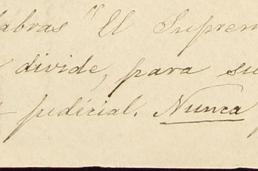 abras "El Suprem
divide, para su
judicial. Nunca